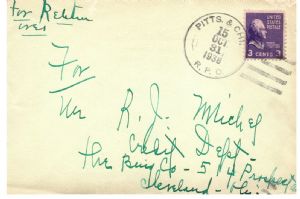 For Relatin
ives
PITTS. & CHI.
15
OCT
31
1938
R.P.O.
UNITED STATES POSTAGE
3 CENTS 3
For
Mr R. J. Michel
Credit Dept-
The Bing Co - 514 Prospect
Cleveland - Oh.